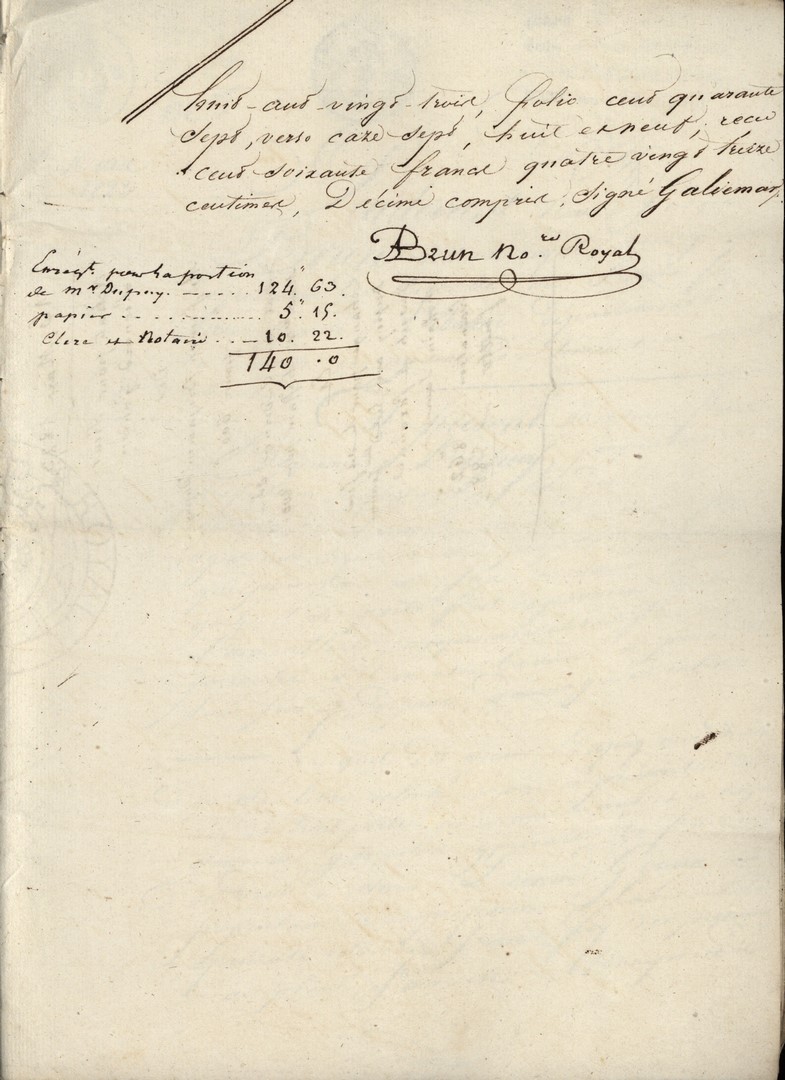 huit-cent-vingt-trois, folio cent quarante
sept, verso caze sept, huit et neuf, reçu
cent soixante francs quatre vingt treize
centimes, Décime compris. Signé Galiemar
Brun No.re Royal
Enregt. pour la portion
de mr Dupuy. ------ 124" 63.
papier ------------ 5" 15.
Clerc et Notaire ---- 10. 22.
140 . 0